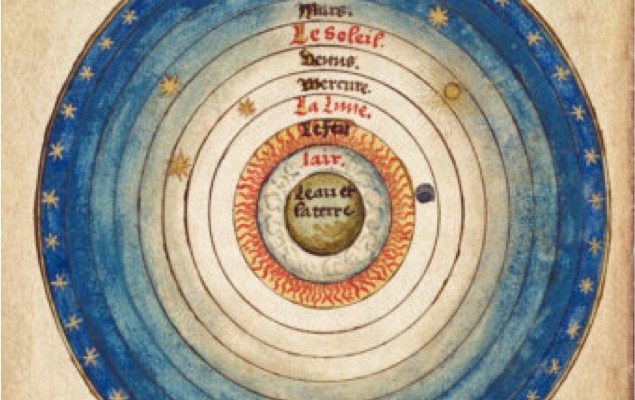 Mars.
Le Soleil.
Venus.
Mercure.
La Lune.
Le feu
lair.
Leau et
la terre